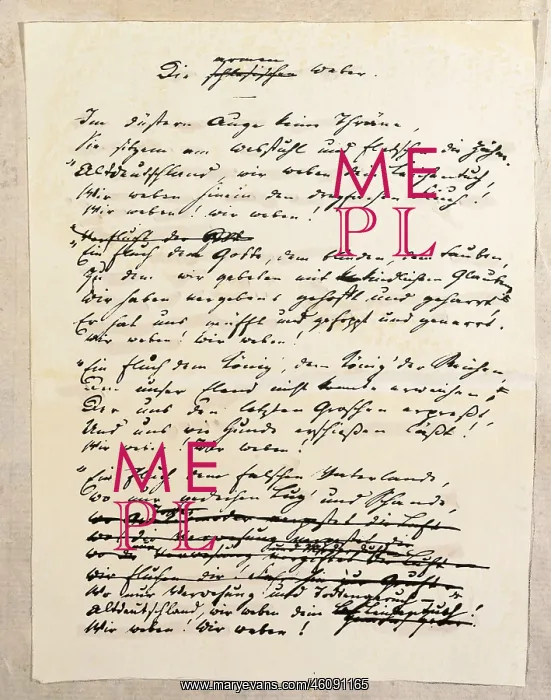 armen
Die schlesischen Weber.
Im düstern Auge keine Thräne,
Sie sitzen am Webstuhl und fletschen die Zähne:
"Altdeutschland, wir weben dein Leichentuch,
Wir weben hinein den dreyfachen Fluch!
Wir weben! wir weben!
"Verflucht der Gott
Ein Fluch dem Gotte, dem blinden, dem tauben,
Zu dem wir gebeten mit kindlichem Glauben
Wir haben vergebens gehofft und geharrt,
Er hat uns geäfft und gefoppt und genarrt.
Wir weben! Wir weben!
"Ein Fluch dem König, dem König der Reichen,
Den unser Elend nicht konnte erweichen,
Der uns den letzten Groschen erpreßt,
Und uns wie Hunde erschießen läßt!
Wir weben! Wir weben!
"Ein Fluch dem falschen Vaterlande,
Wo nur gedeihen Lug und Schande,
die Luft
wo die Verwesung
wo Verwesung die Luft
Wir fluchen dir!
Wo nur Verwesung und Todtengeruch –
Altdeutschland, wir weben dein !
Wir weben! Wir weben!
ME
PL
ME
PL
www.maryevans.com/46091165